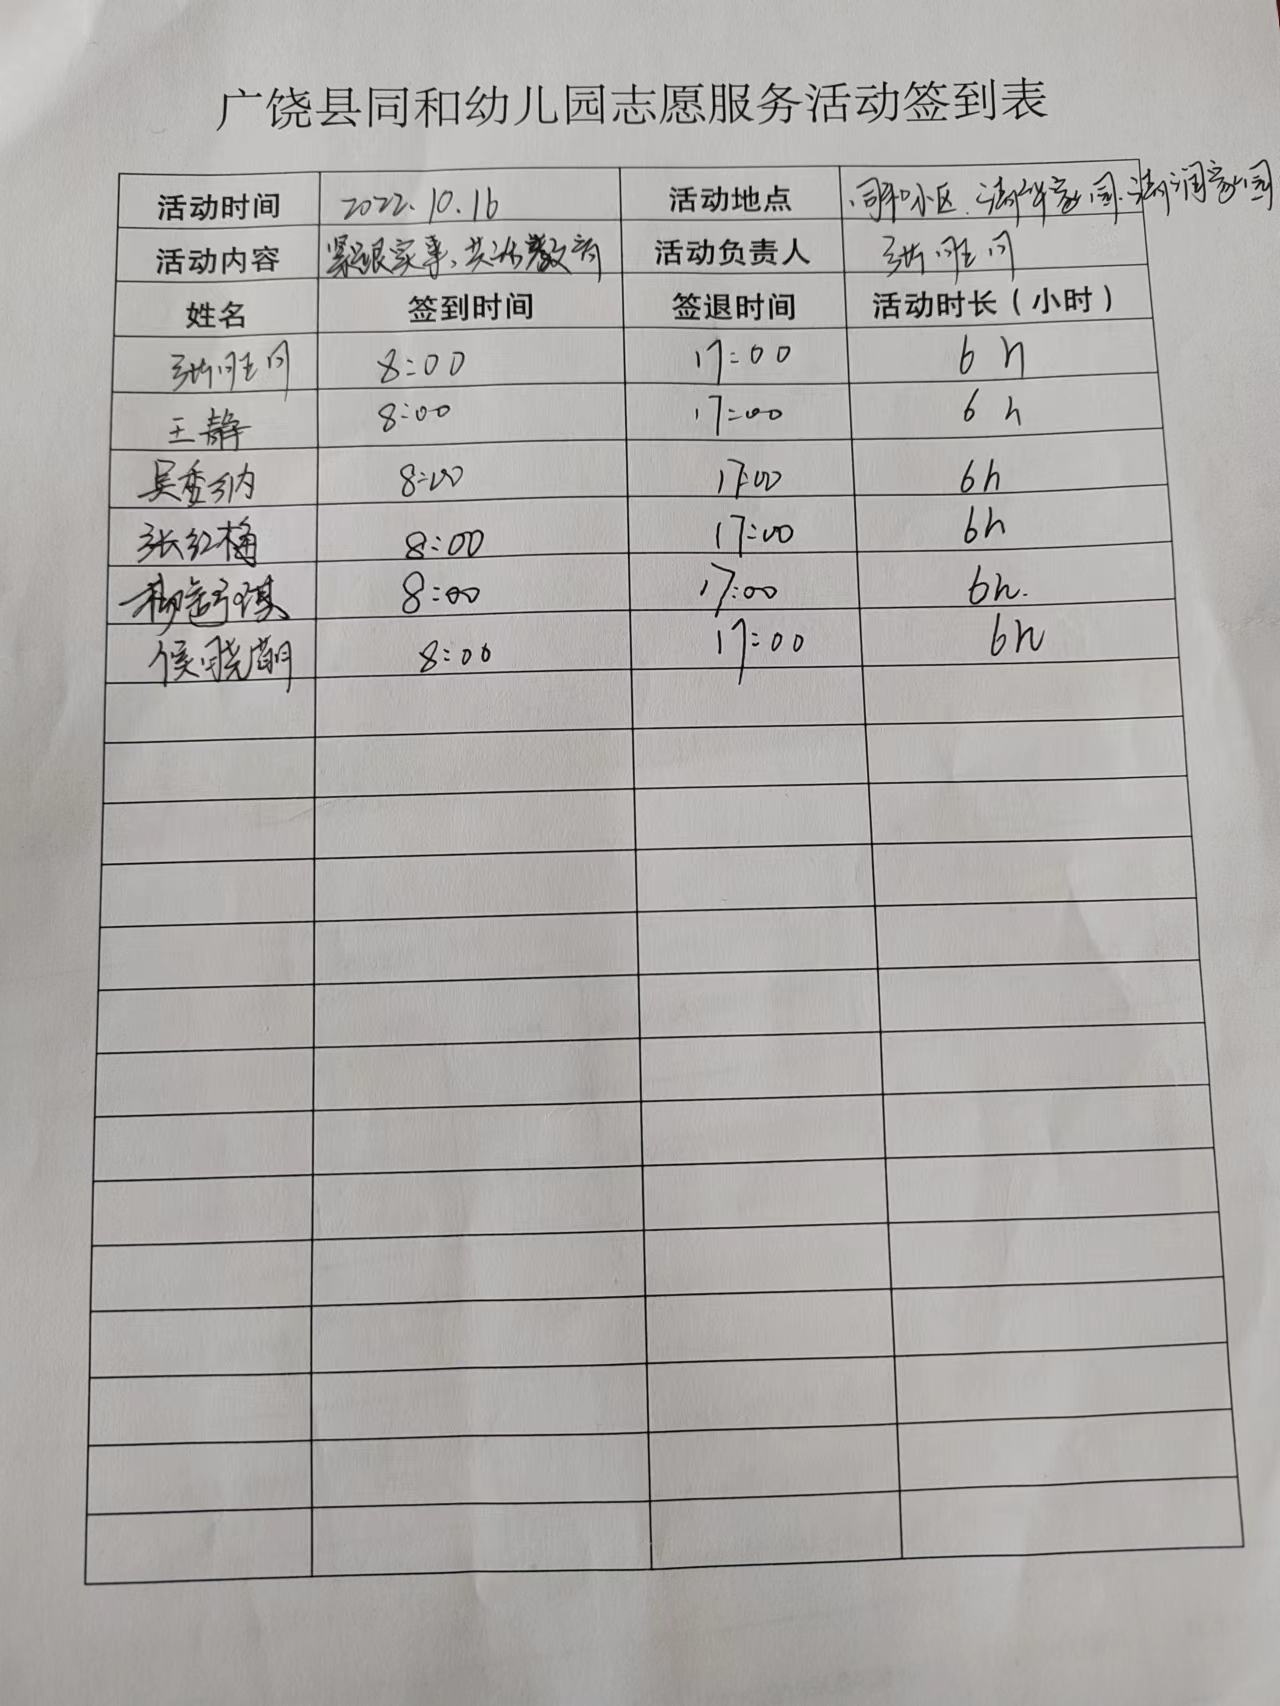 广饶县同和幼儿园志愿服务活动签到表
活动时间 2022.10.16 活动地点 同和小区、清华家园、清润家园
活动内容 紧跟家事、共话教育 活动负责人
姓名 签到时间 签退时间 活动时长（小时）
8:00 17:00 6h
王静 8:00 17:00 6h
吴秀纳 8:00 17:00 6h
张红梅 8:00 17:00 6h
8:00 17:00 6h.
侯晓萌 8:00 17:00 6h